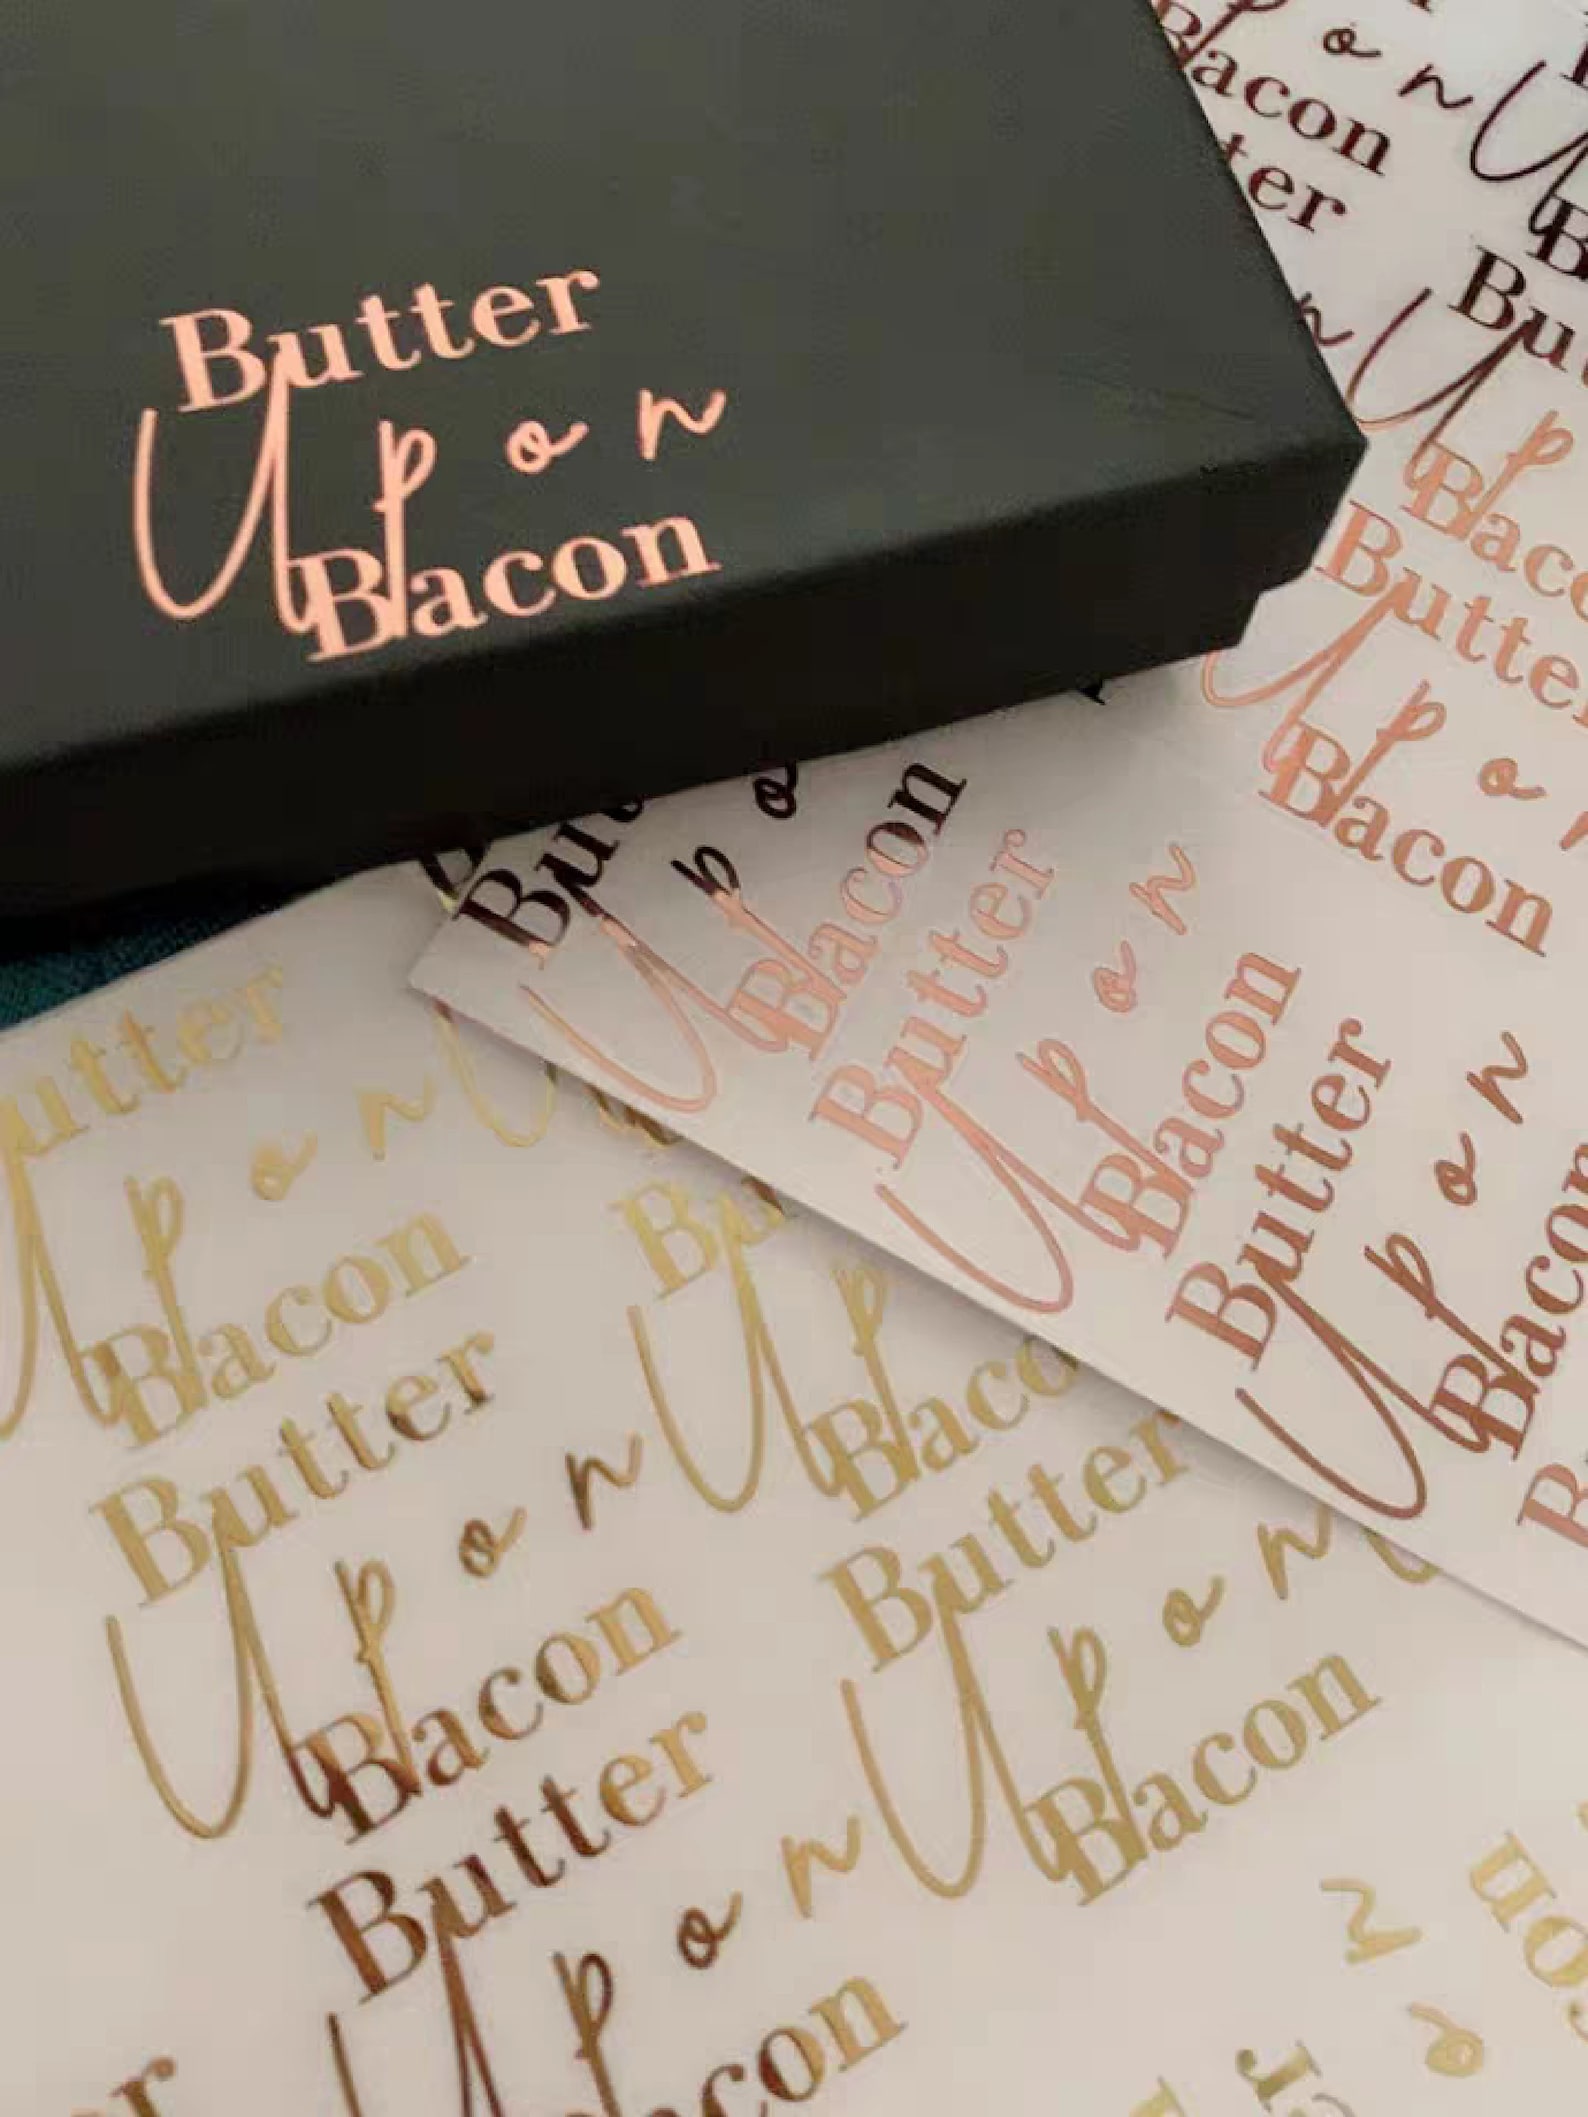 Butter
Upon
Bacon
Bacon
Butter
Upon
Bacon
Bacon
Butter
Upon
Bacon
Butter
Upon
Bacon
Butter
Upon
Bacon
Butter
Upon
Bacon
Butter
Upon
Bacon
Butter
Upon
Bacon